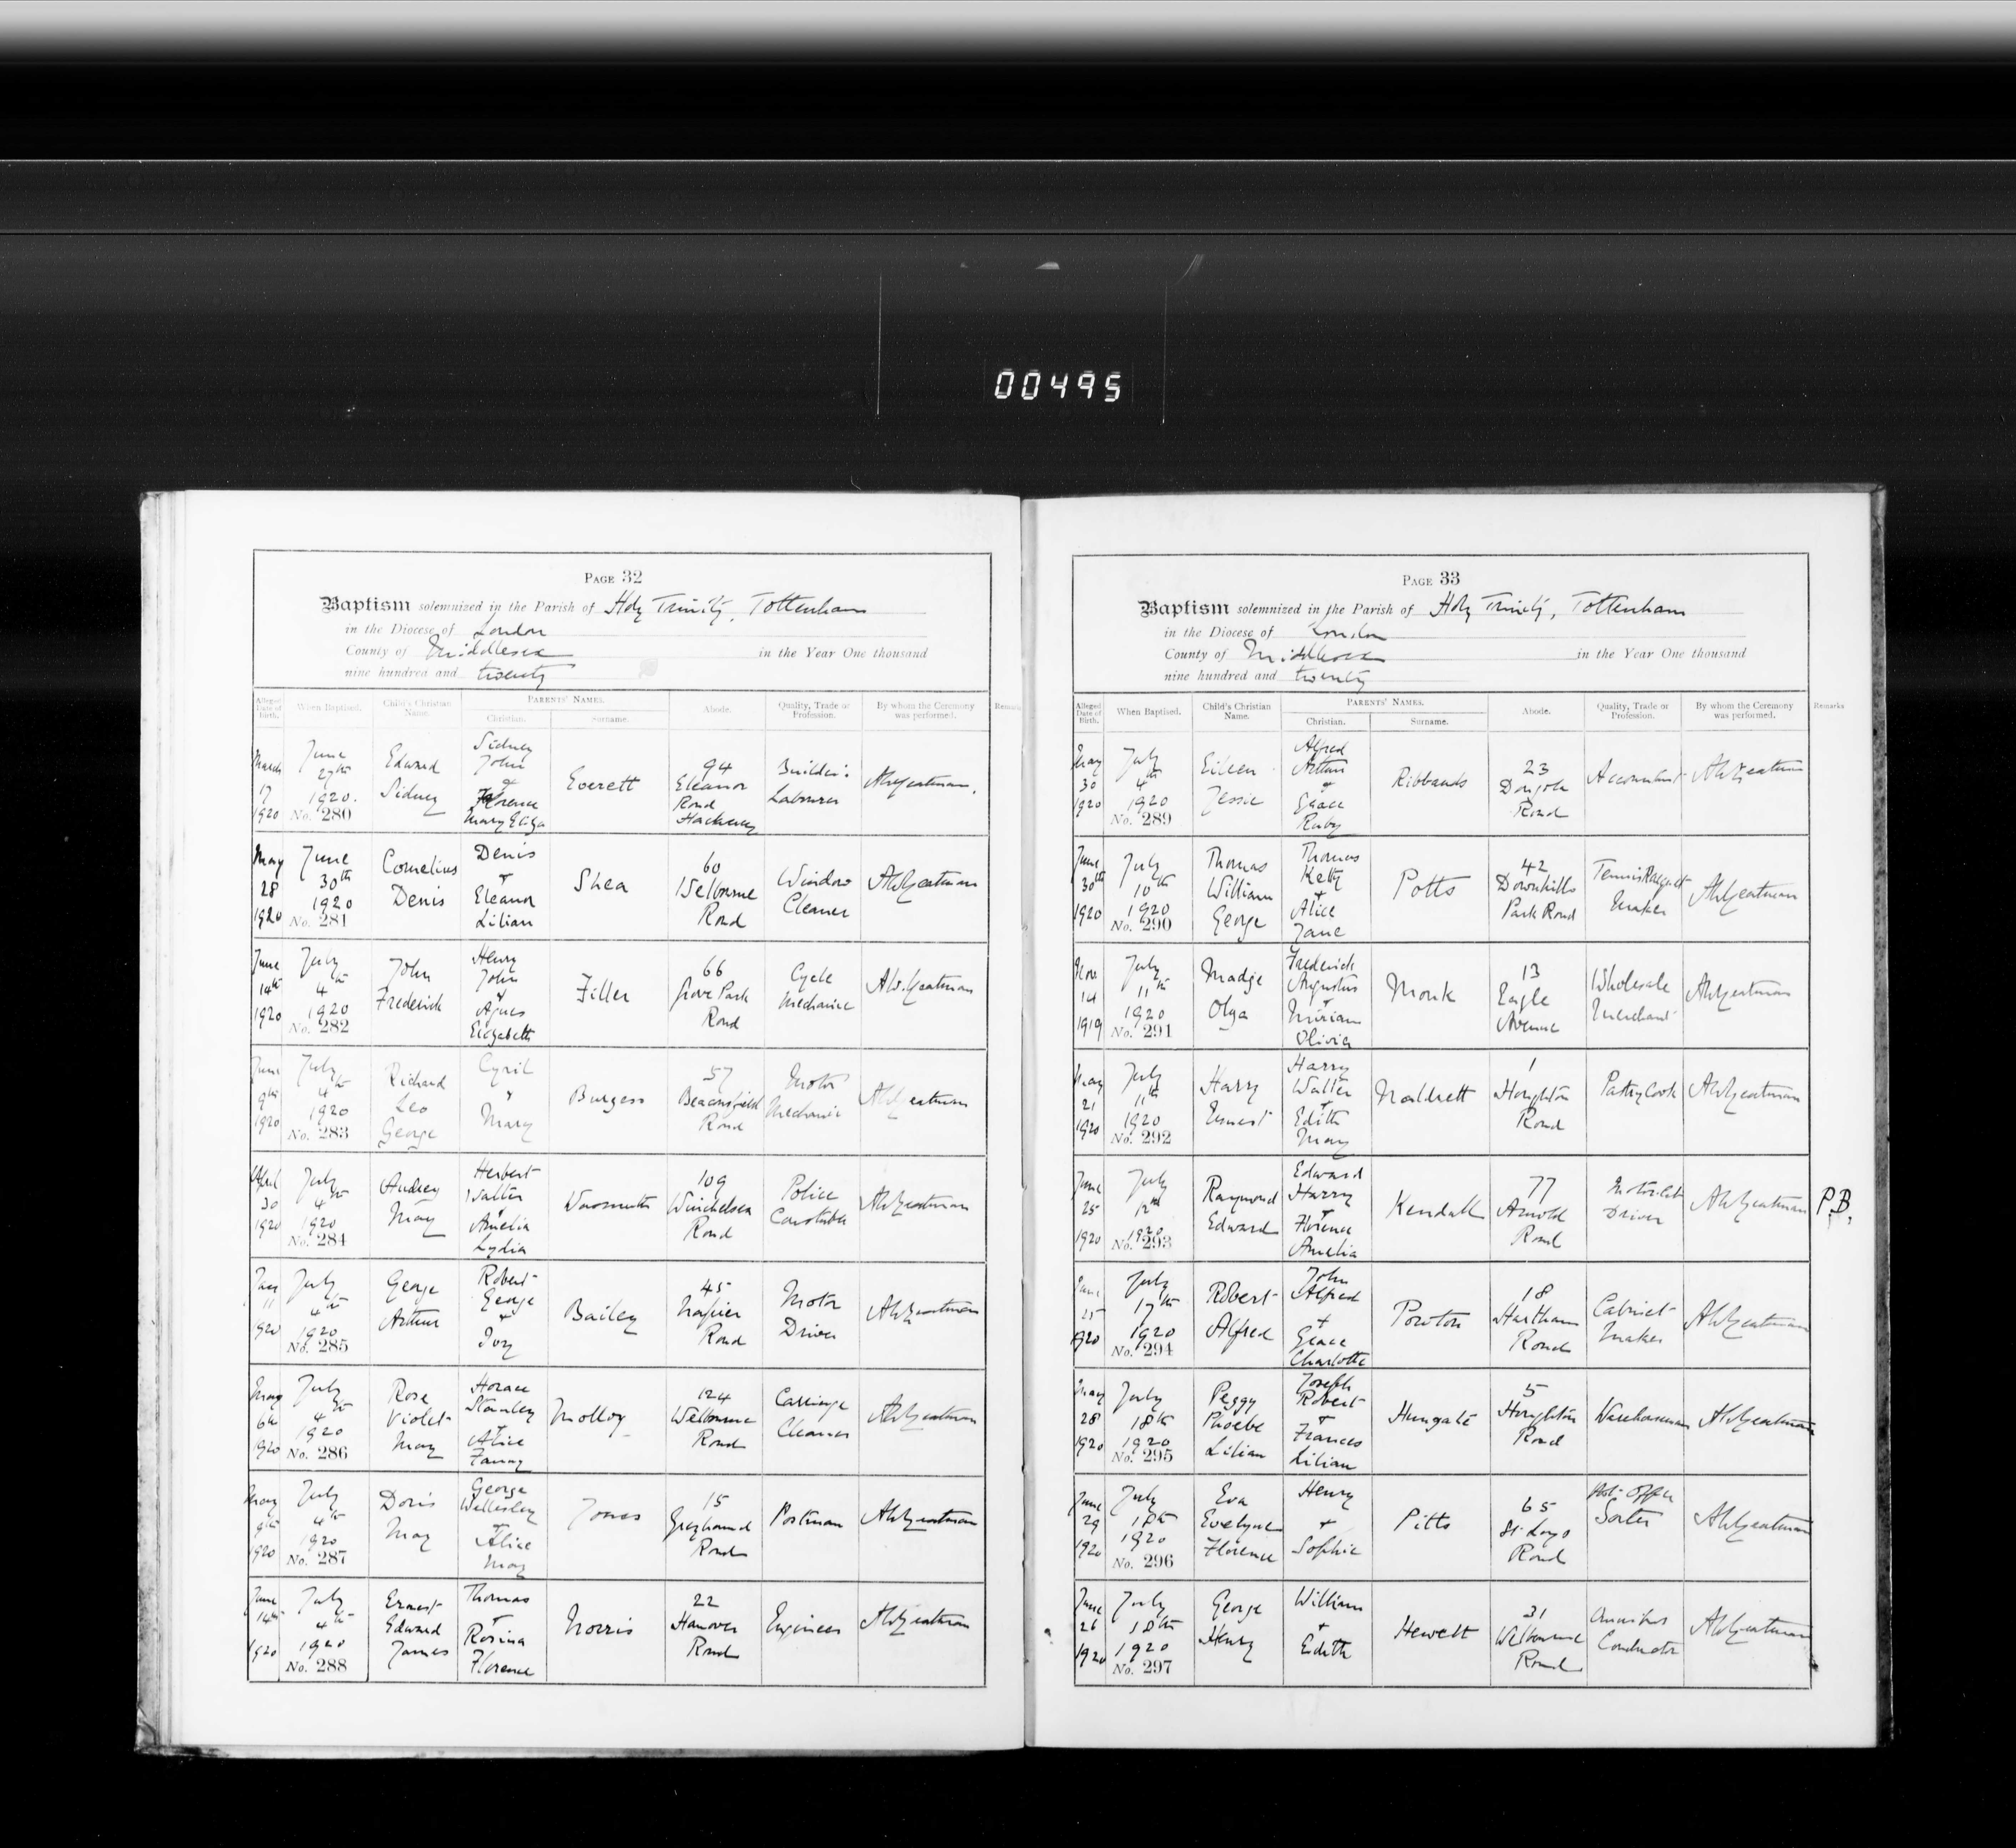 00495
PAGE 32
Baptism solemnized in the Parish of Holy Trinity, Tottenham
in the Diocese of London
County of Middlesex in the Year One thousand
nine hundred and twenty
Alleged Date of Birth. When Baptised. Child's Christian Name. PARENTS' NAMES. Christian. Surname. Abode. Quality, Trade or Profession. By whom the Ceremony was performed. Remarks
March 17 1920 June 27th 1920. No. 280 Edward Sidney Sidney John & Florence Mary Eliza Everett 94 Eleanor Road Hackney Builder's Labourer AWYeatman.
May 28 1920 June 30th 1920 No. 281 Cornelius Denis Denis + Eleanor Lilian Shea 60 Welbourne Road Window Cleaner AWYeatman
June 14th 1920 July 4th 1920 No. 282 John Frederick Henry John & Agnes Elizabeth Filler 66 Grove Park Road Cycle Mechanic AW.Yeatman
June 9th 1920 July 4th 1920 No. 283 Richard Leo George Cyril & Mary Burgess 57 Beaconsfield Road Motor Mechanic AWYeatman
April 30 1920 July 4th 1920 No. 284 Audrey May Herbert Walter & Amelia Lydia 109 Winchelsea Road Police Constable AWYeatman
11 1920 July 4th 1920 No. 285 George Arthur Robert George + Ivy Bailey 45 Napier Road Motor Driver AWYeatman
May 6th 1920 July 4th 1920 No. 286 Rose Violet May Horace Stanley + Alice Fanny Molloy 124 Welbourne Road Carriage Cleaner AWYeatman
May 9th 1920 July 4th 1920 No. 287 Doris May George Wellesley + Alice May Jones 15 Greyhound Road Postman AWYeatman
June 14th 1920 July 4th 1920 No. 288 Ernest Edward James Thomas + Rosina Florence Norris 22 Hanover Road Engineer AWYeatman
PAGE 33
Baptism solemnized in the Parish of Holy Trinity, Tottenham
in the Diocese of London
County of Middlesex in the Year One thousand
nine hundred and twenty
Alleged Date of Birth. When Baptised. Child's Christian Name. PARENTS' NAMES. Christian. Surname. Abode. Quality, Trade or Profession. By whom the Ceremony was performed. Remarks
May 30 1920 July 4th 1920 No. 289 Eileen Jessie Alfred Arthur & Grace Ruby Ribbands 23 Dongola Road Accountant AWYeatman
June 30th 1920 July 10th 1920 No. 290 Thomas William George Thomas Kelty + Alice Jane Potts 42 Downhills Park Road Tennis Racquet Maker AWYeatman
Nov 14 1919 July 11th 1920 No. 291 Madge Olga Frederick Augustus + Miriam Olivia Monk 13 Eagle Avenue Wholesale Merchant AWYeatman
May 21 1920 July 11th 1920 No. 292 Harry Ernest Harry Walter + Edith May Naldrett 1 Houghton Road Pastry Cook AWYeatman
June 25 1920 July 12th 1920 No. 293 Raymond Edward Edward Harry + Florence Amelia Kendall 77 Arnold Road Motor Cab Driver AWYeatman P.B.
June 25 1920 July 17th 1920 No. 294 Robert Alfred John Alfred + Grace Charlotte Powton 18 Hartham Road Cabinet Maker AWYeatman
May 28 1920 July 18th 1920 No. 295 Peggy Phoebe Lilian Joseph Robert + Frances Lilian Hungate 5 Houghton Road Warehouseman AWYeatman
June 29 1920 July 18th 1920 No. 296 Eva Evelyne Florence Henry + Sophie Pitts 65 St Loys Road Post Office Sorter AWYeatman
June 26 1920 July 18th 1920 No. 297 George Henry William + Edith Hewett 31 Welbourne Road Omnibus Conductor AWYeatman